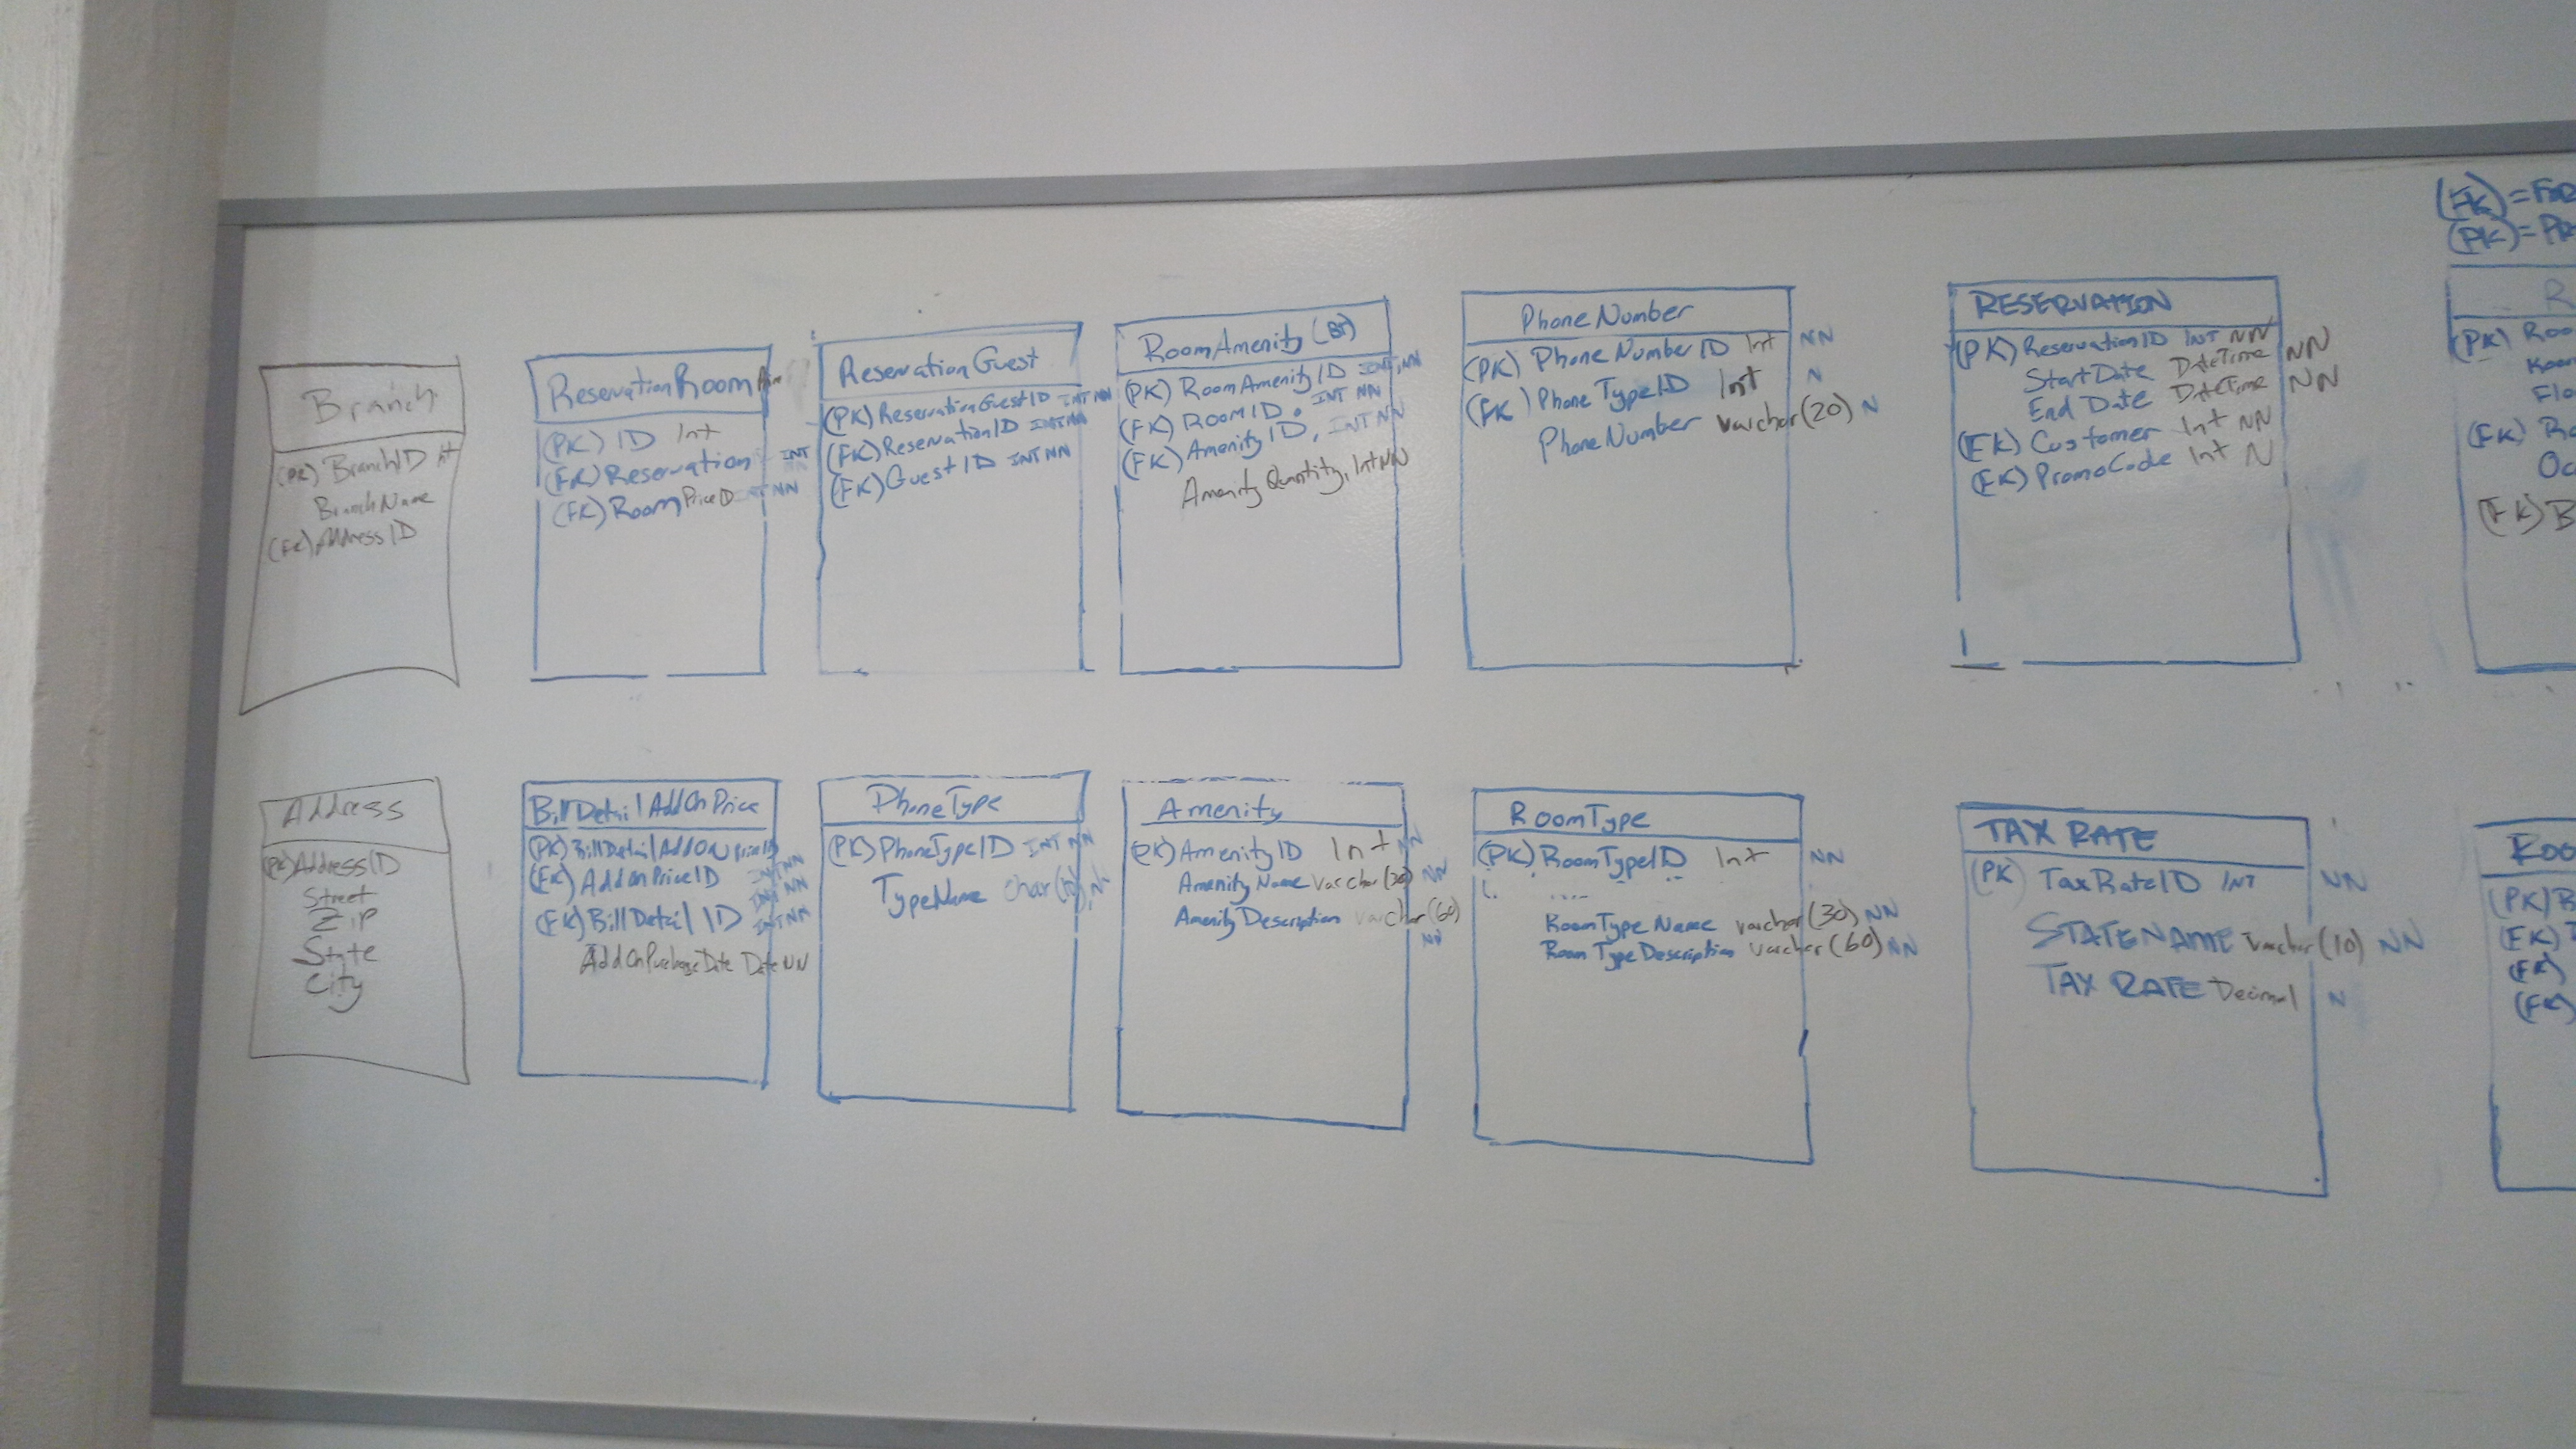 (FK)=FOR
(PK)=PR
Branch
(PK) BranchID
BranchName
(FK) AddressID
ReservationRoom
(PK) ID Int
(FK) Reservation INT
(FK) RoomPriceID INT NN
ReservationGuest
(PK) ReservationGuestID INT NN
(FK) ReservationID INT NN
(FK) GuestID INT NN
RoomAmenity (BT)
(PK) RoomAmenityID INT, NN
(FK) RoomID. INT NN
(FK) AmenityID, INT NN
Amenity Quantity, Int NN
PhoneNumber
(PK) PhoneNumberID Int NN
(FK) PhoneTypeID Int N
PhoneNumber varchar(20) N
RESERVATION
(PK) ReservationID INT NN
StartDate DateTime NN
End Date DateTime NN
(FK) Customer Int NN
(FK) PromoCode Int N
R
(PK) Roo
Room
Flo
(FK) Ro
Oc
(FK) B
Address
(PK) AddressID
Street
Zip
State
City
BillDetailAddOnPrice
(PK) BillDetailAddOnPriceID INT NN
(FK) AddOnPriceID INT NN
(FK) BillDetailID INT NN
AddOnPurchaseDate Date NN
PhoneType
(PK) PhoneTypeID INT NN
TypeName char(10), N
Amenity
(PK) AmenityID Int NN
Amenity Name varchar(30) NN
Amenity Description varchar(60)
NN
RoomType
(PK) RoomTypeID Int NN
RoomTypeName varchar(30) NN
RoomTypeDescription varchar(60) NN
TAX RATE
(PK) TaxRateID INT NN
STATENAME varchar(10) NN
TAX RATE Decimal N
ROO
(PK) R
(FK)
(FK)
(FK)